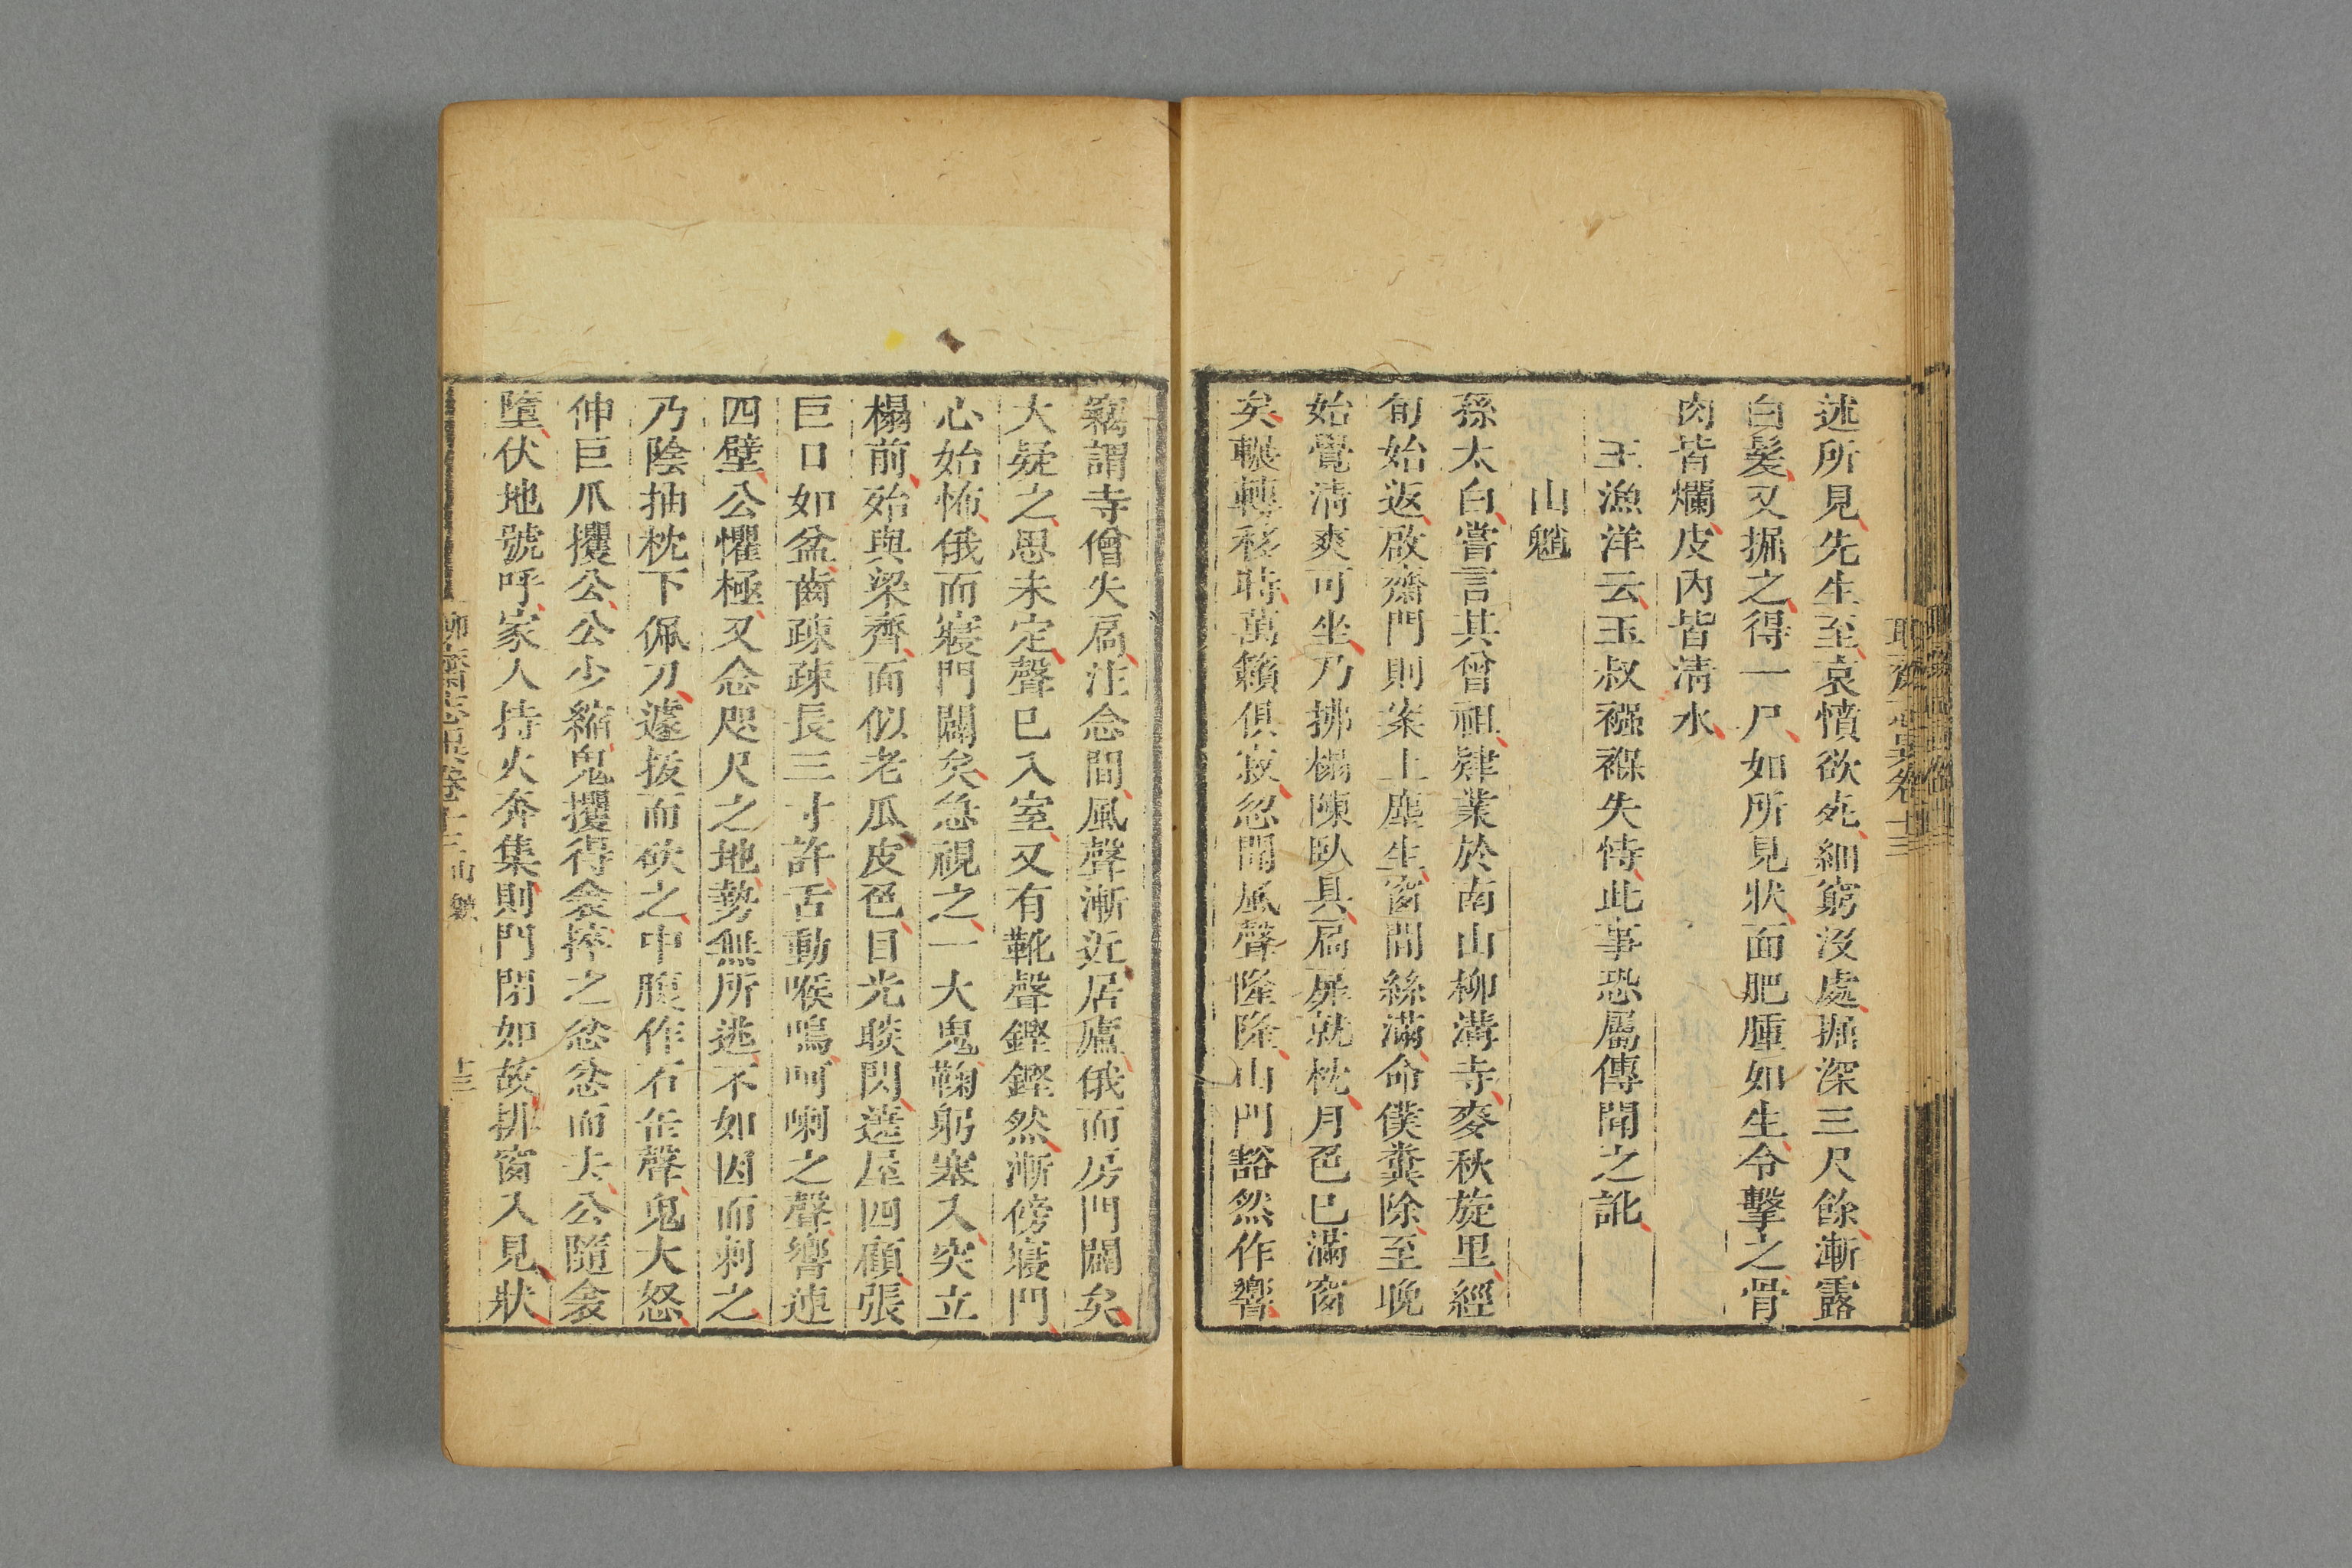 聊齋志異卷十三
述所見先生至哀憤欲死細窮沒處掘深三尺餘漸露
白髮又掘之得一尺如所見狀面肥腫如生令擊之骨
肉皆爛皮內皆淸水
王漁洋云玉叔襁褓失恃此事恐屬傳聞之訛
山魈
孫太白嘗言其曾祖肄業於南山柳溝寺麥秋旋里經
旬始返啟齋門則案上塵生窗間絲滿命僕糞除至晚
始覺淸爽可坐乃拂榻陳臥具扃扉就枕月色已滿窗
矣輾轉移時萬籟俱寂忽聞風聲隆隆山門豁然作響
竊謂寺僧失扃注念間風聲漸近居廬俄而房門闢矣
大疑之思未定聲已入室又有靴聲鏗鏗然漸傍寢門
心始怖俄而寢門闢矣急視之一大鬼鞠躬塞入突立
榻前殆與梁齊面似老瓜皮色目光睒閃遶屋四顧張
巨口如盆齒疎疎長三寸許舌動喉鳴呵喇之聲響連
四壁公懼極又念咫尺之地勢無所逃不如因而刺之
乃陰抽枕下佩刀遽拔而砍之中腹作石缶聲鬼大怒
伸巨爪攫公公少縮鬼攫得衾捽之忿忿而去公隨衾
墮伏地號呼家人持火奔集則門閉如故排窗入見狀
聊齋志異卷十三 山魈 十三